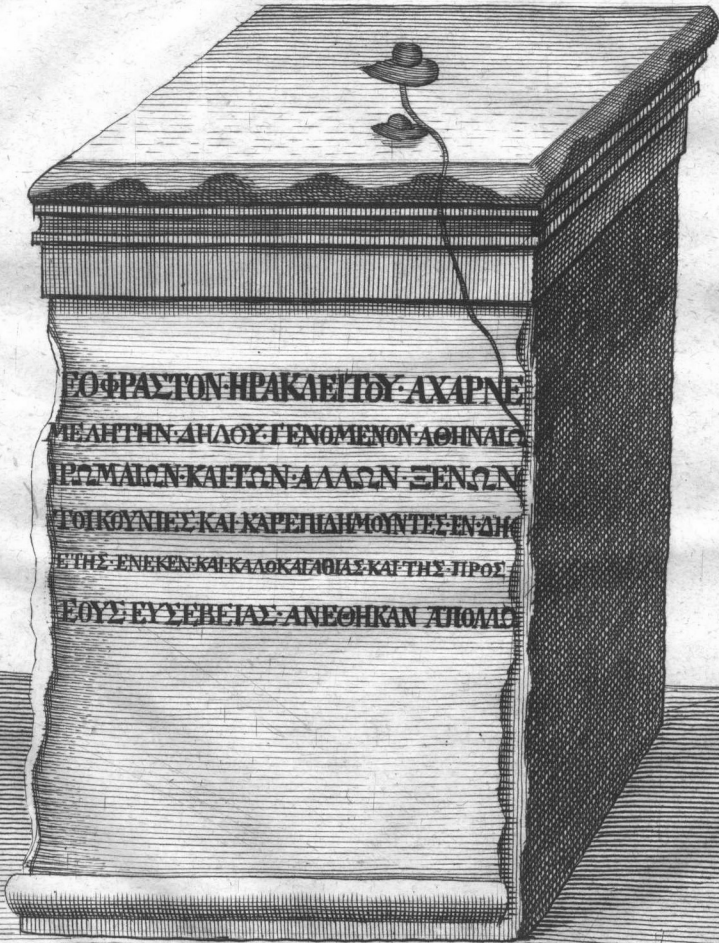 ΕΟΦΡΑΣΤΟΝ·ΗΡΑΚΛΕΙΤΟΥ·ΑΧΑΡΝΕ
ΜΕΛΗΤΗΝ·ΔΗΛΟΥ·ΓΕΝΟΜΕΝΟΝ·ΑΘΗΝΑΙΩ
ΡΩΜΑΙΩΝ·ΚΑΙ·ΤΩΝ·ΑΛΛΩΝ·ΞΕΝΩΝ
ΤΟΙΚΟΥΝΙΕΣ ΚΑΙ ΚΑΡΕΠΙΔΗΜΟΥΝΤΕΣ·ΕΝ·ΔΗ
ΕΤΗΣ·ΕΝΕΚΕΝ·ΚΑΙ·ΚΑΛΟΚΑΓΑΘΙΑΣ·ΚΑΙ·ΤΗΣ·ΠΡΟΣ
ΕΟΥΣ ΕΥΣΕΒΕΙΑΣ·ΑΝΕΘΗΚΑΝ ΑΠΟΛΛΩ